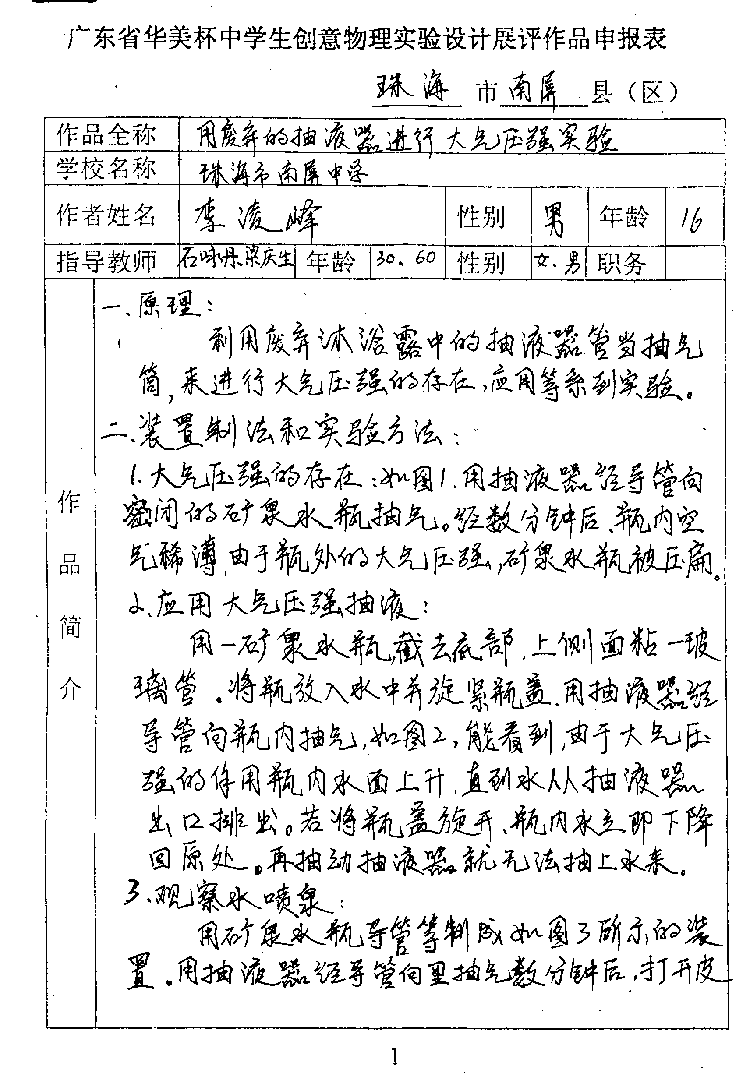 广东省华美杯中学生创意物理实验设计展评作品申报表
珠海 市 南屏 县（区）
作品全称 用废弃的抽液器进行大气压强实验
学校名称 珠海市南屏中学
作者姓名 李凌峰 性别 男 年龄 16
指导教师 石咏丹 梁庆生 年龄 30、60 性别 女、男 职务
作品简介
一、原理：
利用废弃沐浴露中的抽液器管当抽气
筒，来进行大气压强的存在、应用等系列实验。
二、装置制法和实验方法：
1. 大气压强的存在：如图1. 用抽液器经导管向
密闭的矿泉水瓶抽气。经数分钟后，瓶内空
气稀薄，由于瓶外的大气压强，矿泉水瓶被压扁。
2. 应用大气压强抽液：
用一矿泉水瓶，截去底部，上侧面粘一玻
璃管。将瓶放入水中并旋紧瓶盖，用抽液器经
导管向瓶内抽气，如图2，能看到，由于大气压
强的作用瓶内水面上升，直到水从抽液器
出口排出。若将瓶盖旋开，瓶内水立即下降
回原处。再抽动抽液器就无法抽上水来。
3、观察水喷泉：
用矿泉水瓶导管等制成如图3所示的装
置。用抽液器经导管向里抽气数分钟后，打开皮
1